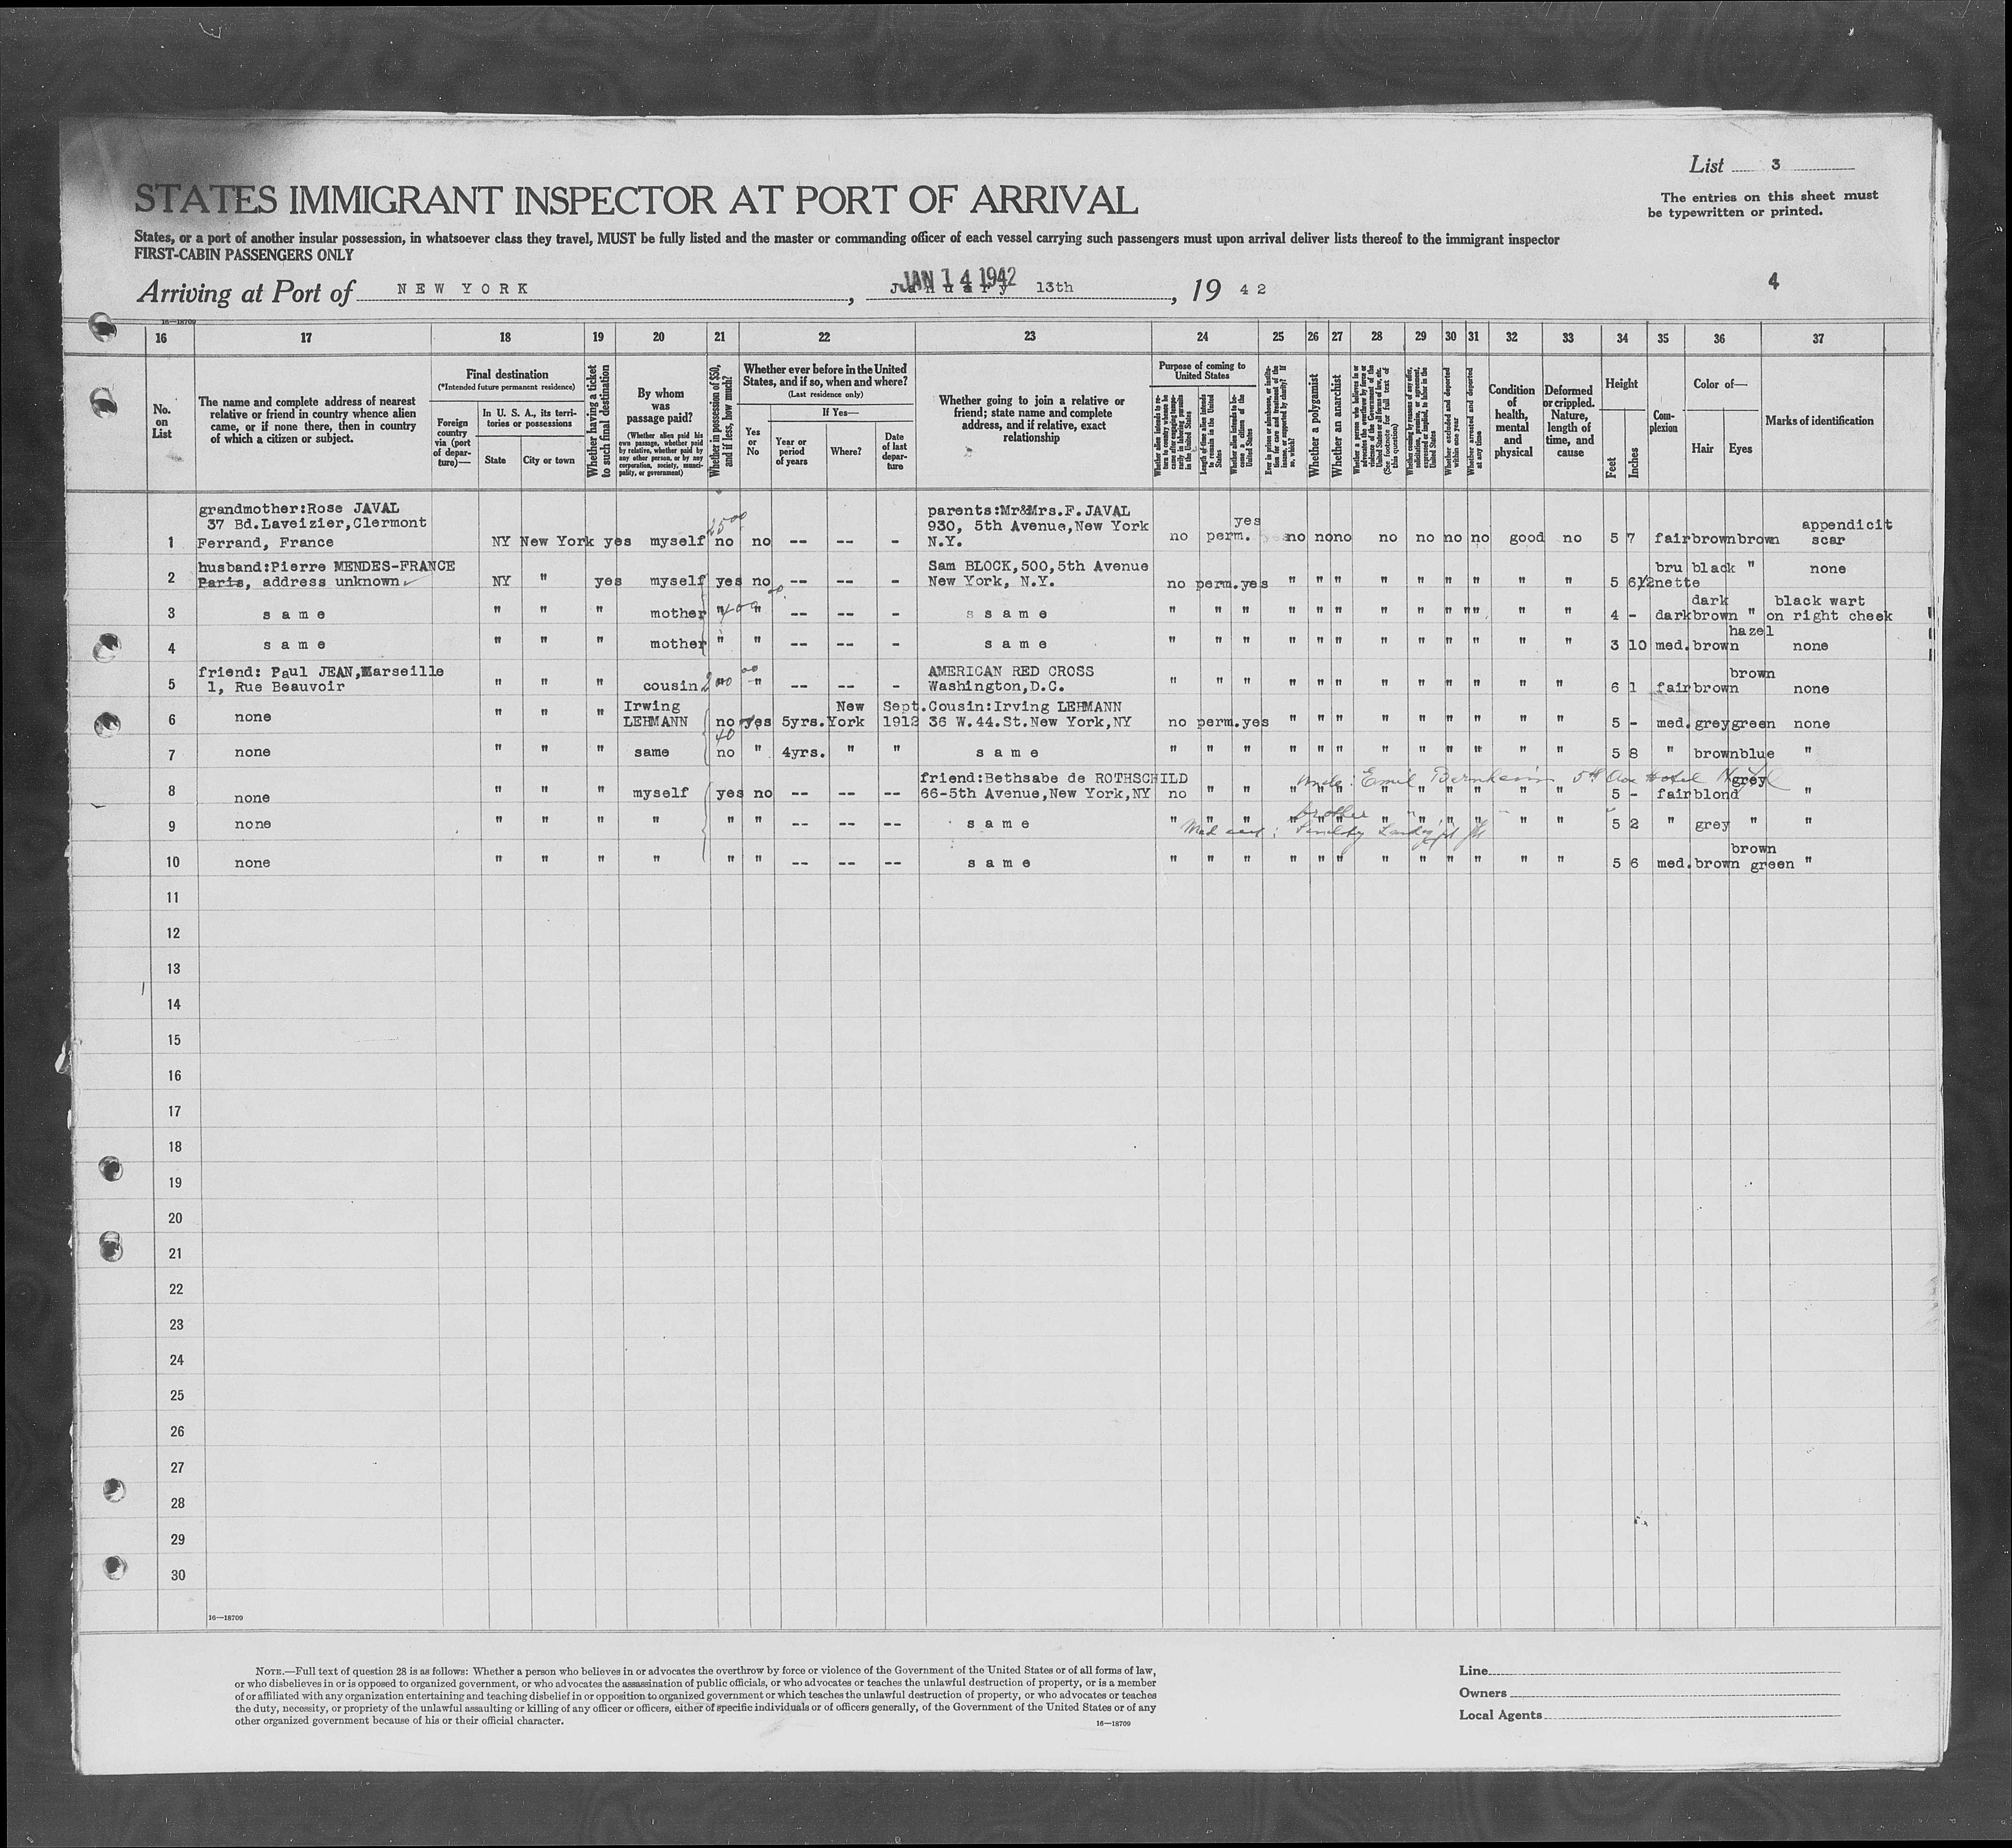 List 3
STATES IMMIGRANT INSPECTOR AT PORT OF ARRIVAL
The entries on this sheet must
be typewritten or printed.
States, or a port of another insular possession, in whatsoever class they travel, MUST be fully listed and the master or commanding officer of each vessel carrying such passengers must upon arrival deliver lists thereof to the immigrant inspector
FIRST-CABIN PASSENGERS ONLY
Arriving at Port of NEW YORK, January 13th, 19 42
JAN 14 1942
4
16—18709
16 17 18 19 20 21 22 23 24 25 26 27 28 29 30 31 32 33 34 35 36 37
No. on List
The name and complete address of nearest relative or friend in country whence alien came, or if none there, then in country of which a citizen or subject.
Final destination
(*Intended future permanent residence)
Foreign country via (port of departure)—
In U. S. A., its territories or possessions
State
City or town
Whether having a ticket to such final destination
By whom was passage paid?
(Whether alien paid his own passage, whether paid by relative, whether paid by any other person, or by any corporation, society, municipality, or government)
Whether in possession of $50, and if less, how much?
Whether ever before in the United States, and if so, when and where?
(Last residence only)
Yes or No
If Yes—
Year or period of years
Where?
Date of last departure
Whether going to join a relative or friend; state name and complete address, and if relative, exact relationship
Purpose of coming to United States
Length of time alien intends to remain in the United States
Whether alien intends to become a citizen of the United States
Whether a polygamist
Whether an anarchist
Whether excluded and deported within one year
Whether arrested and deported at any time
Condition of health, mental and physical
Deformed or crippled. Nature, length of time, and cause
Height
Feet
Inches
Complexion
Color of—
Hair
Eyes
Marks of identification
1 grandmother:Rose JAVAL
37 Bd.Laveizier,Clermont
Ferrand, France
NY New York yes myself no no -- -- -
2500
parents:Mr&Mrs.F.JAVAL
930, 5th Avenue,New York
N.Y.
no perm. yes no no no no no no no good no 5 7 fair brown brown appendicit
scar
2 husband:Pierre MENDES-FRANCE
Paris, address unknown
NY " yes myself yes no -- -- -
Sam BLOCK,500,5th Avenue
New York, N.Y.
no perm.yes " " " " " " " " " 5 6½ bru
nette black " none
3 same " " " mother " " -- -- - s same " " " " " " " " " " " " 4 - dark dark
brown " black wart
on right cheek
400 00
4 same " " " mother " " -- -- - same " " " " " " " " " " " " 3 10 med. brown hazel none
5 friend: Paul JEAN,Marseille
1, Rue Beauvoir
" " " cousin " " -- -- -
200 00
AMERICAN RED CROSS
Washington,D.C.
" " " " " " " " " " " " 6 1 fair brown brown none
6 none " " " Irwing
LEHMANN no yes 5yrs. New
York Sept.
1912
Cousin:Irving LEHMANN
36 W.44.St.New York,NY
no perm.yes " " " " " " " " " 5 - med. grey green none
40
7 none " " " same no " 4yrs. " " same " " " " " " " " " " " " 5 8 " brown blue "
8 none " " " myself yes no -- -- --
friend:Bethsabe de ROTHSCHILD
66-5th Avenue,New York,NY
no " " " " " " " " " " " 5 - fair blond grey "
uncle: Emil Bernheim 5th Ave Hotel
9 none " " " " " " -- -- -- same " " " " " " " " " " " " 5 2 " grey " "
brother
Med cert:
10 none " " " " " " -- -- -- same " " " " " " " " " " " " 5 6 med. brown brown
green "
11
12
13
14
15
16
17
18
19
20
21
22
23
24
25
26
27
28
29
30
16—18709
NOTE.—Full text of question 28 is as follows: Whether a person who believes in or advocates the overthrow by force or violence of the Government of the United States or of all forms of law,
or who disbelieves in or is opposed to organized government, or who advocates the assassination of public officials, or who advocates or teaches the unlawful destruction of property, or is a member
of or affiliated with any organization entertaining and teaching disbelief in or opposition to organized government or which teaches the unlawful destruction of property, or who advocates or teaches
the duty, necessity, or propriety of the unlawful assaulting or killing of any officer or officers, either of specific individuals or of officers generally, of the Government of the United States or of any
other organized government because of his or their official character.
16—18709
Line
Owners
Local Agents